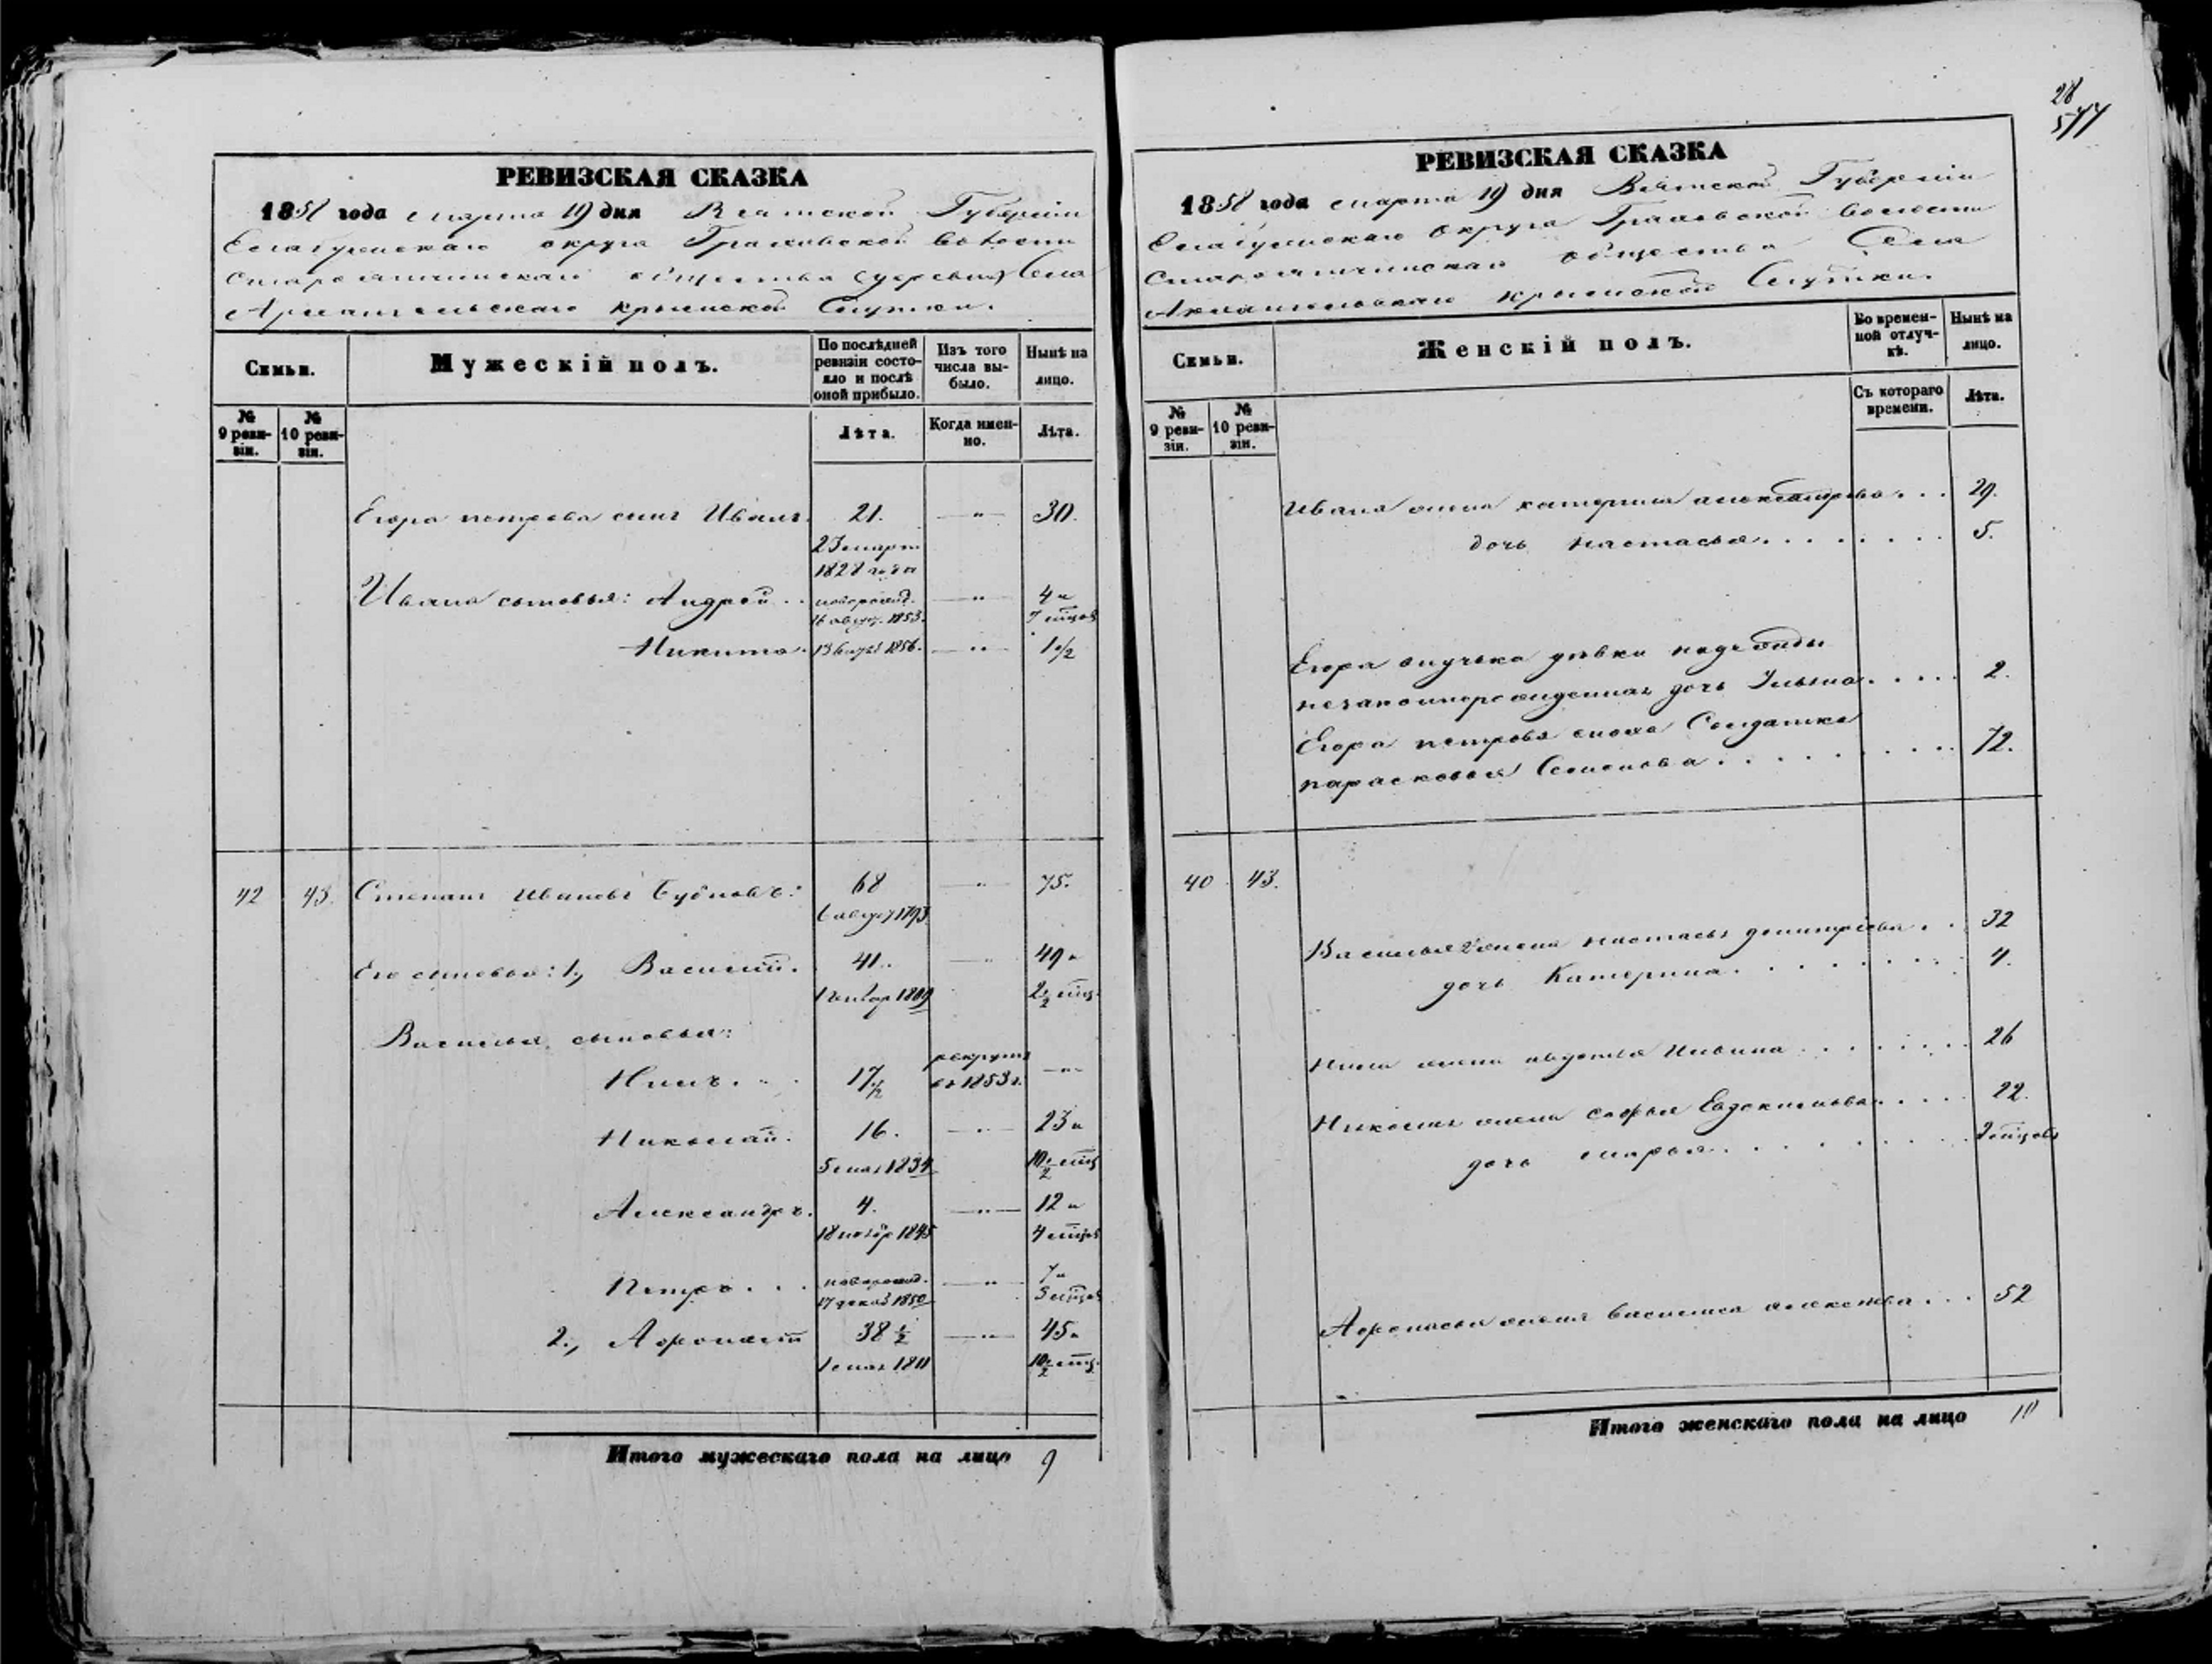 28
577
РЕВИЗСКАЯ СКАЗКА
1858 года марта 19 дня Вятской Губернiи
Елабужскаго округа Граховской волости
общества (деревня) Села
Архангельскаго крымской Слутки.
Семьи.
Мужескiй полъ.
По послѣдней ревизiи состо-
яло и послѣ
оной прибыло.
Изъ того
числа вы-
было.
Нынѣ на
лицо.
№
9 реви-
зiи.
№
10 реви-
зiи.
Лѣта.
Когда имен-
но.
Лѣта.
Егора петрова сынъ Иванъ. 21. — " — 30.
23 март
1828 года
Ивана сыновья: Андрей . . новорожд. — " — 4 и
16 август. 1853. 7 мѣцов
Никита. 13 1856. — " — 1 1/2
42 43. Степанъ Ивановъ Бубновъ: 68 — " — 75.
6 август 1793
Его сыновья: 1., Василiй. 41. — " — 49 и
1 генвар 1809 2 1/2 мѣц.
Василья сыновья:
Нилъ. . . 17 1/2 рекрутъ
въ 1853 г. — " —
Николай. 16. — " — 23 и
5 мая 1834 10 1/2 мѣц
Александръ. 4. — " — 12 и
18 ноябр 1845 4 мѣцов
Петръ. . . новорожд. — " — 7 и
17 декаб 1850 3 мѣцов
2., Афонасiй 38 1/2 — " — 45 и
1 мая 1811 10 1/2 мѣц.
Итого мужескаго пола на лицо 9
РЕВИЗСКАЯ СКАЗКА
1858 года марта 19 дня Вятской Губернiи
Елабужскаго округа Граховской волости
общества Села
Архангельскаго крымской Слутки.
Семьи.
Женскiй полъ.
Во времен-
ной отлуч-
кѣ.
Нынѣ на
лицо.
№
9 реви-
зiи.
№
10 реви-
зiи.
Съ котораго
времени.
Лѣта.
Ивана жена катерина александрова . . . 29.
дочь настасья . . . . . . . . 5.
Егора внучька дѣвки надежды
незаконнорожденная дочь Ульяна . . . . . 2.
Егора петрова сноха Солдатка
парасковья Семенова . . . . . . . . . . 72.
40 43.
Василья 2 жена настасья димитрiева . . 32
дочь Катерина . . . . . . . . . 4.
Нила жена авдотья Ильина . . . . . . . . 26
Николая жена софья Евдокимова . . . . . 22.
дочь марья . . . . . . . . . 2 мѣцовъ
Афонасья жена василиса алексѣева . . . 52
Итого женскаго пола на лицо 10